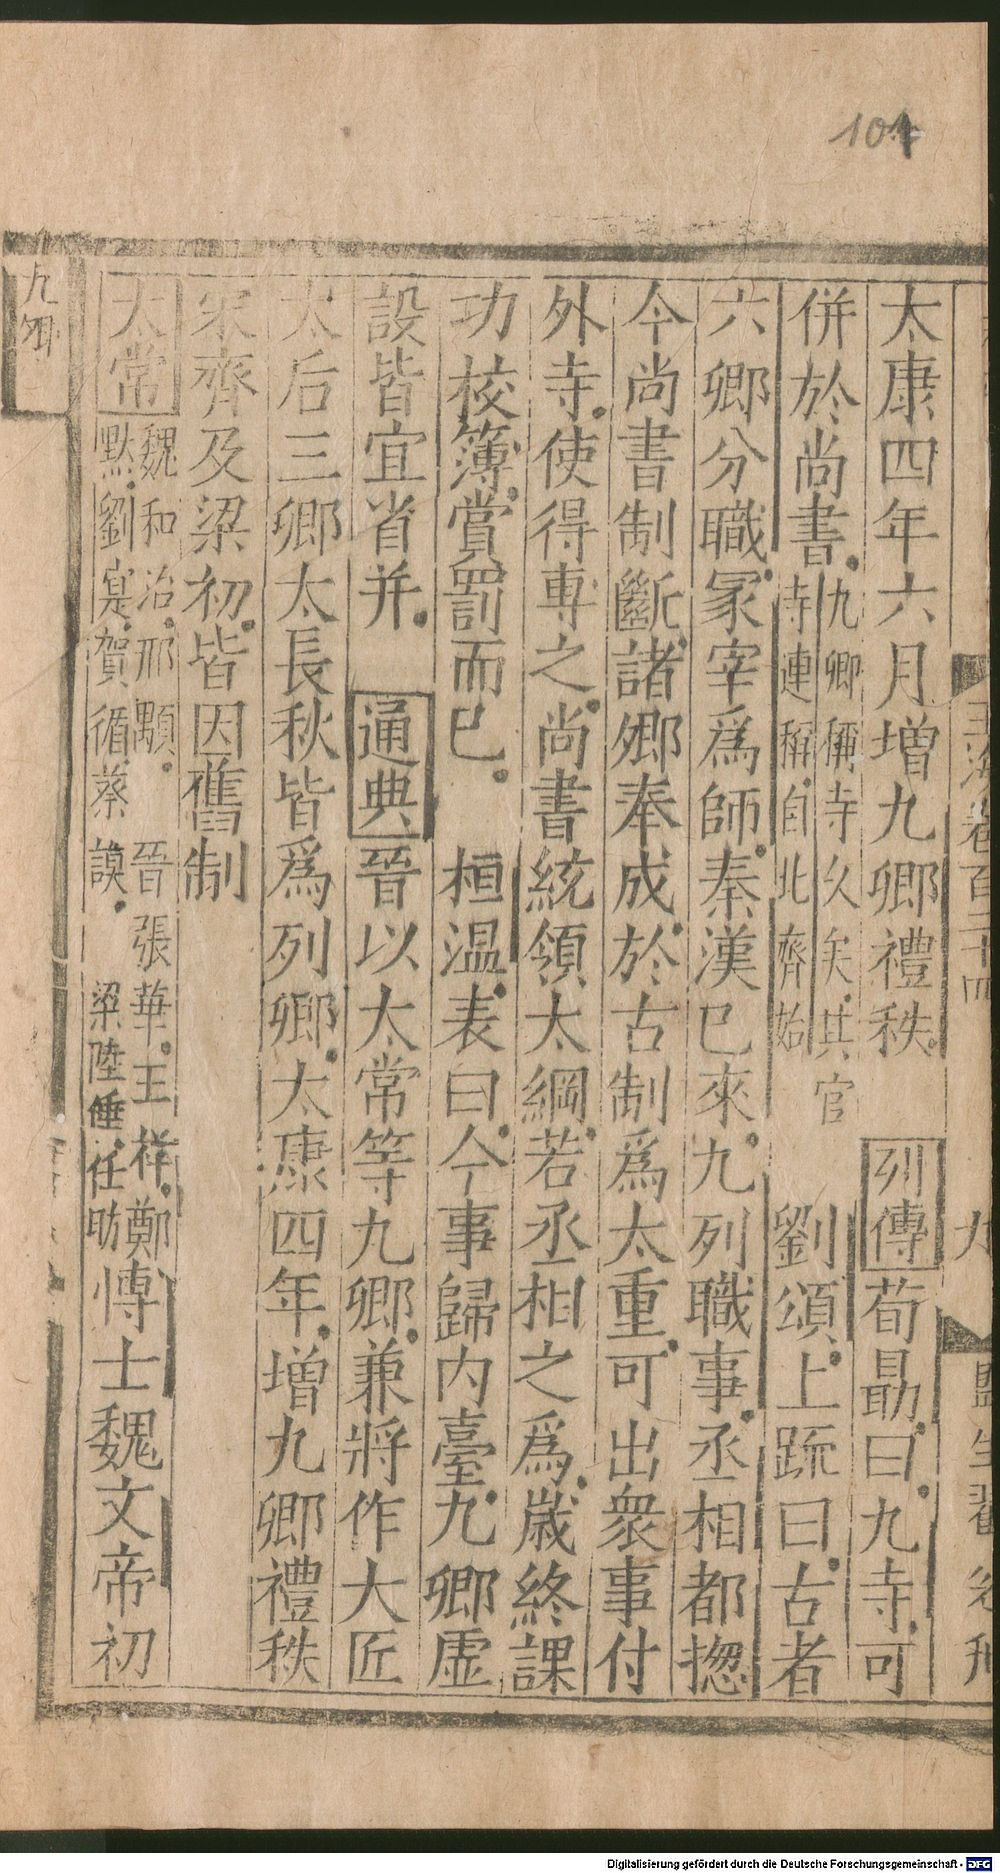 101
玉海卷百二十四 九 監生翟
太康四年六月增九卿禮秩 列傳 荀勗曰九寺可
併於尚書 九卿稱寺久矣其官 寺連稱自北齊始 劉頌上疏曰古者
六卿分職冢宰爲師秦漢已來九列職事丞相都揔
今尚書制斷諸卿奉成於古制爲太重可出衆事付
外寺使得專之尚書統領太綱若丞相之爲歲終課
功校簿賞罰而已 桓温表曰今事歸内臺九卿虛
設皆宜省并 通典 晉以太常等九卿兼將作大匠
太后三卿太長秋皆爲列卿太康四年增九卿禮秩
宋齊及梁初皆因舊制
太常 魏和洽邢顒 晉張華王祥鄭 默劉寔賀循蔡謨 梁陸倕任昉 博士魏文帝初
九卿
Digitalisierung gefördert durch die Deutsche Forschungsgemeinschaft - DFG